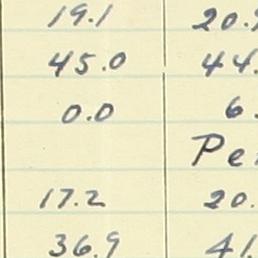 19.1 20.
45.0 44.
0.0 6.
Pe
17.2 20.
36.9 41.